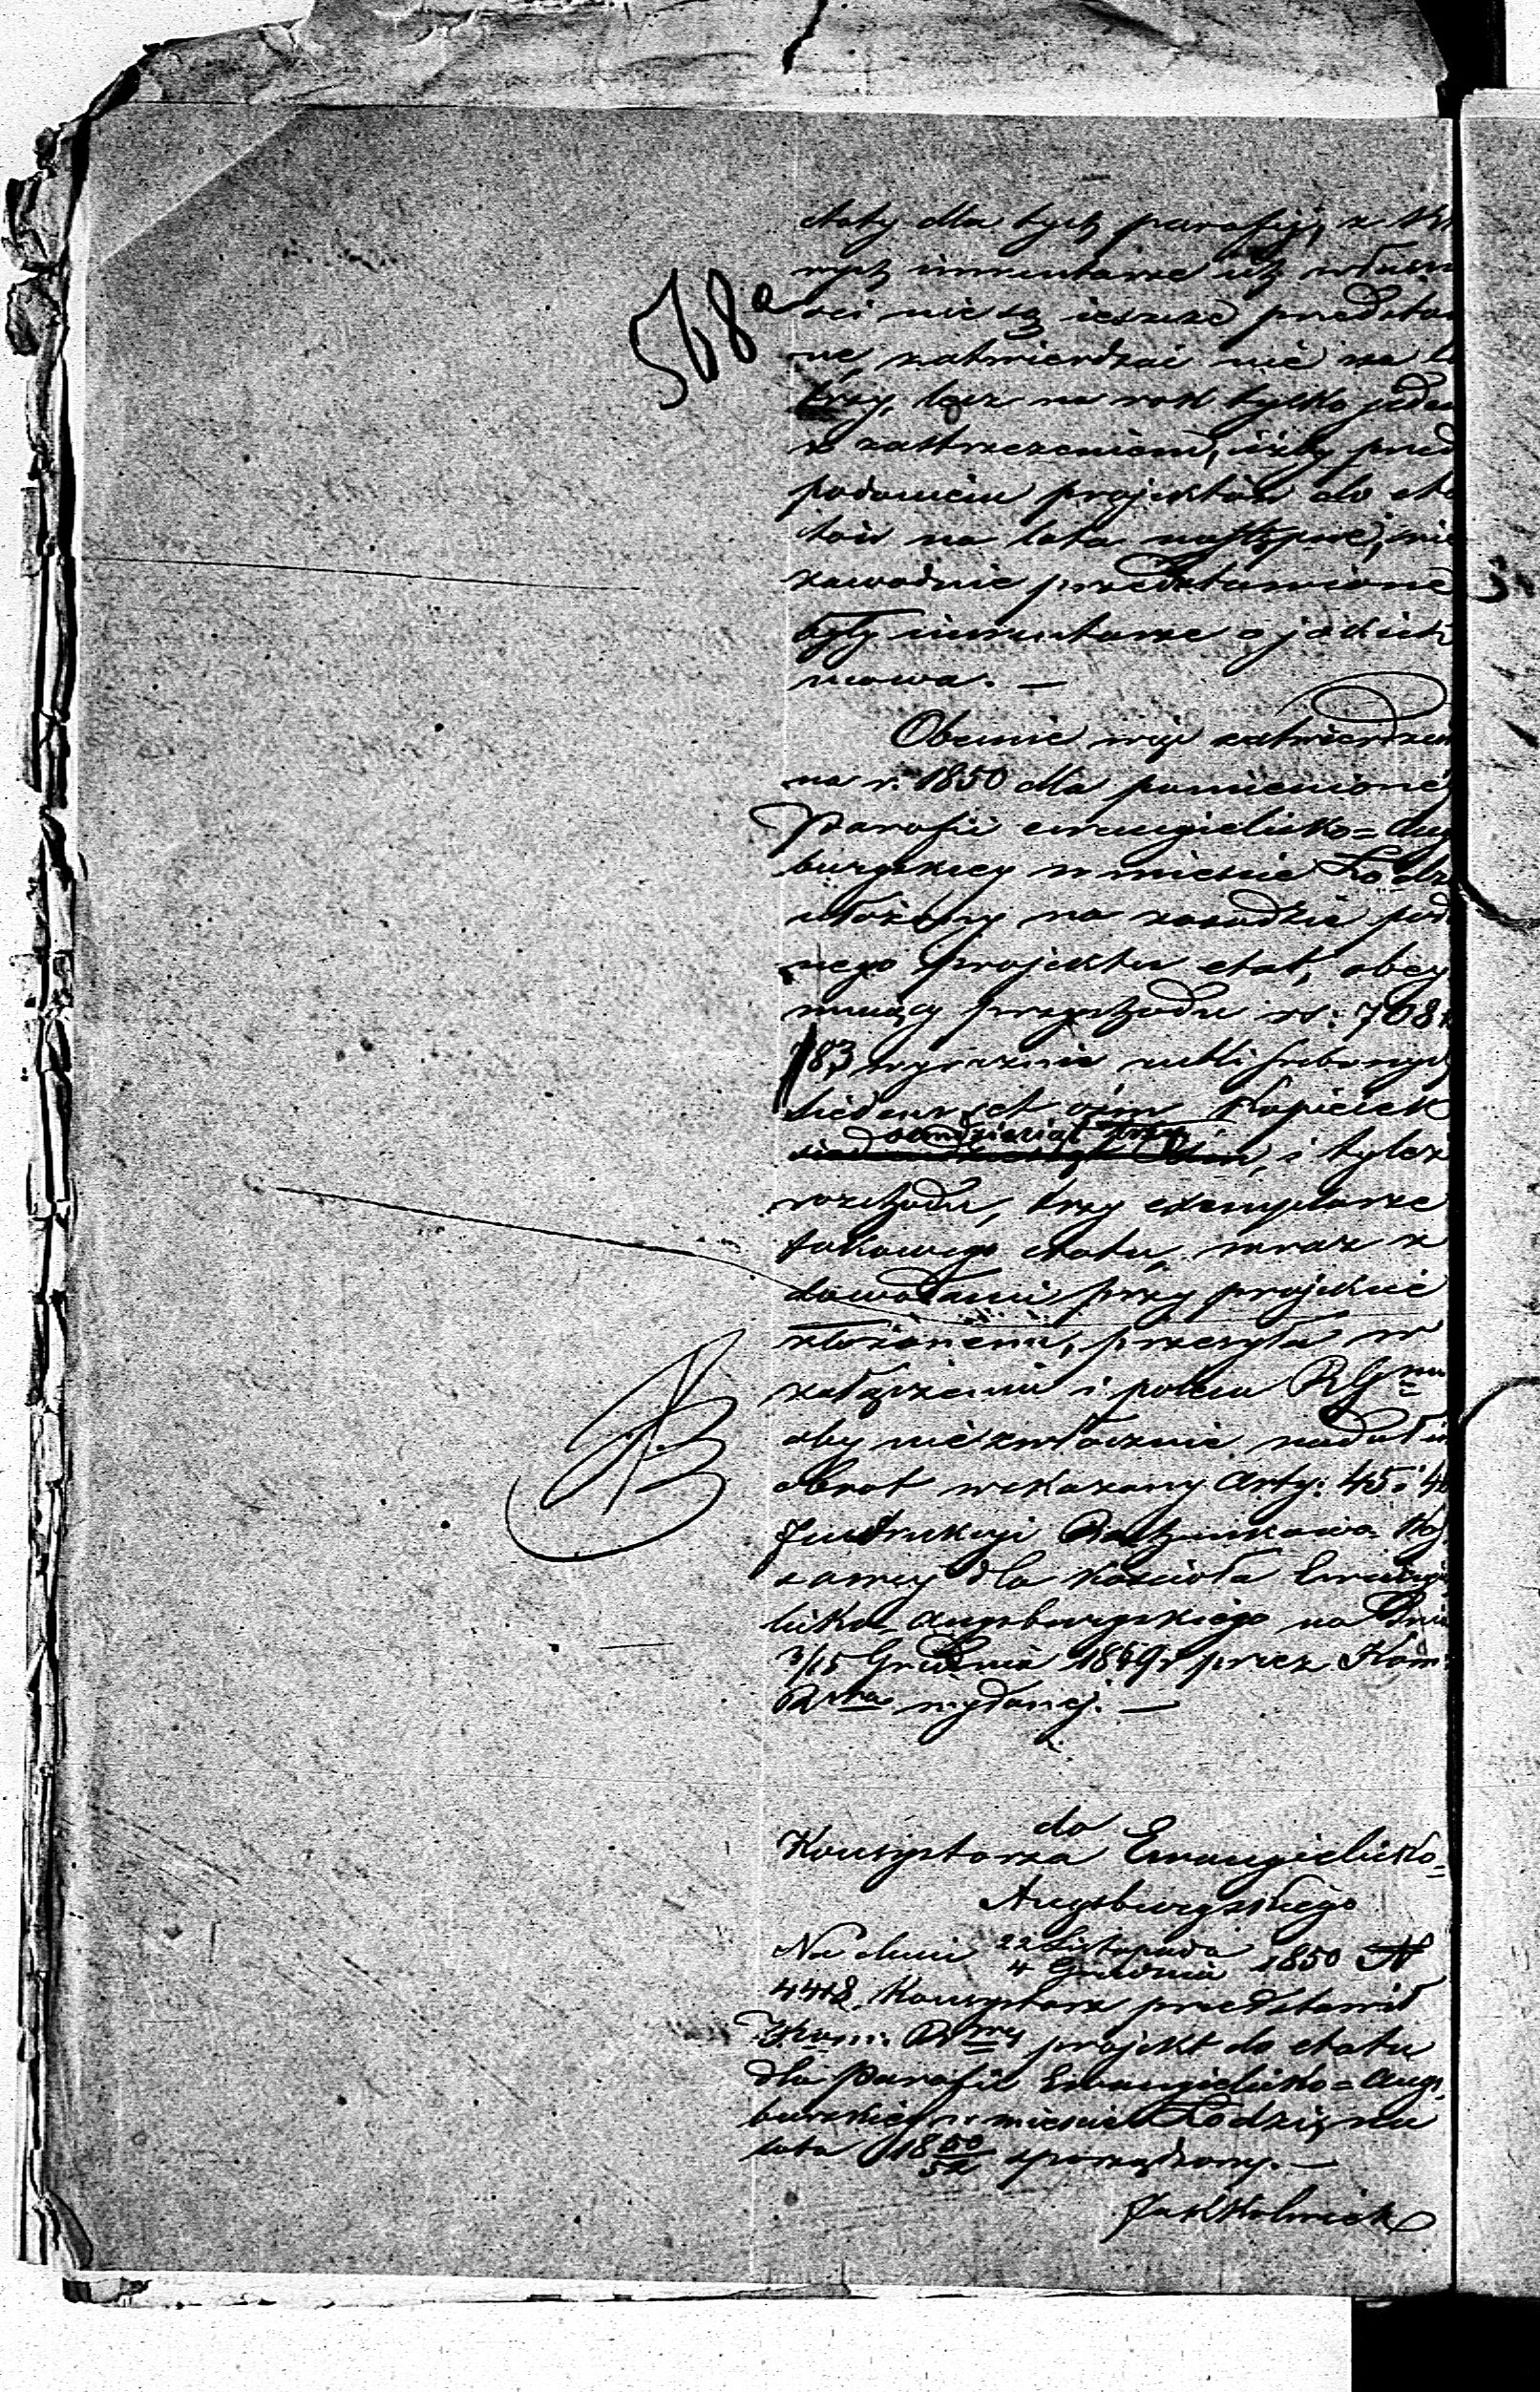 568a
etaty dla tych parafij, z któ
rych inwentarze ich własno
ści nie są ieszcze przedstawio
ne, zatwierdzać nie na lat
trzy, lecz na rok tylko jeden
z zastrzeżeniem, iżby przed
podaniem projektów do eta
tów na lata następne, nie
zawodnie przedstawione
były inwentarze o jakich
mowa. —
Obecnie więc zatwierdzon
na r. 1850 dla pomienionej
Parafii ewangielicko=Aug
burgskiey w mieście Łodzi
ułożony na zasadzie poda
nego projektu etat, obey
muiący przychodu rs: 708 k
83 wyraźnie rubli srebrnych
siedemset ośm kopieiek
ośmdziesiąt trzy, i tyleż
rozchodu, trzy exemplarze
takowego etatu, wraz z
dowodami przy projekcie
złożonemi, przesyła w
załączeniu i poleca RGmu
aby niezwłocznie nadał im
obrot wskazany Arty: 45 i 46
Instrukcyi Rachunkowo Kas
sowey dla kościoła Ewangie
licko-Augsburgskiego na dniu
3/15 Grudnia 1849 r przez Kom:
Rzdo wydanej. —
do
Konsystorza Ewangielicko=
Augsburgskiego
Na dniu 22 Listopada
4 Grudnia 1850 N
4418. Konsystorz przedstawił
Kom: Rwey projekt do etatu
dla Parafii Ewangielicko=Augs
burskiey w mieście Łodzi, na
lata 1850/52 sporządzony. —